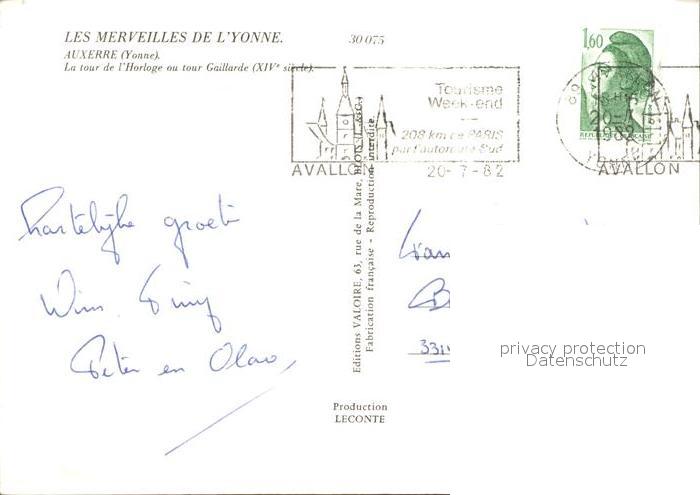 LES MERVEILLES DE L'YONNE. 30 075
AUXERRE (Yonne).
La tour de l'Horloge ou tour Gaillarde (XIVe siècle).
1,60
Tourisme
Week-end
208 km de PARIS
par l'autoroute Sud
AVALLON 20-7-82
AVALLON
Hartelijke groeten
Wim
Peter en Olav
33
privacy protection
Datenschutz
Editions VALOIRE, 63, rue de la Mare, BLOIS (L.-&-C.)
Fabrication française - Reproduction interdite.
Production
LECONTE